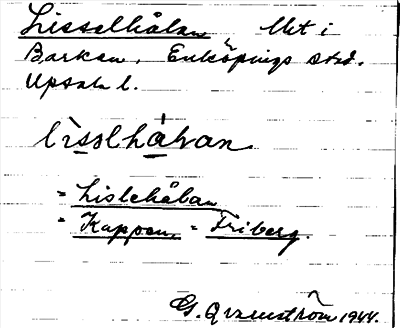 Lisselhålan Utt i
Barken, Enköpings stad.
Upsala l.
lìsslhå̀lan
= Lislehålan
= Kappen = Friberg.
G. Arzenström 1944.